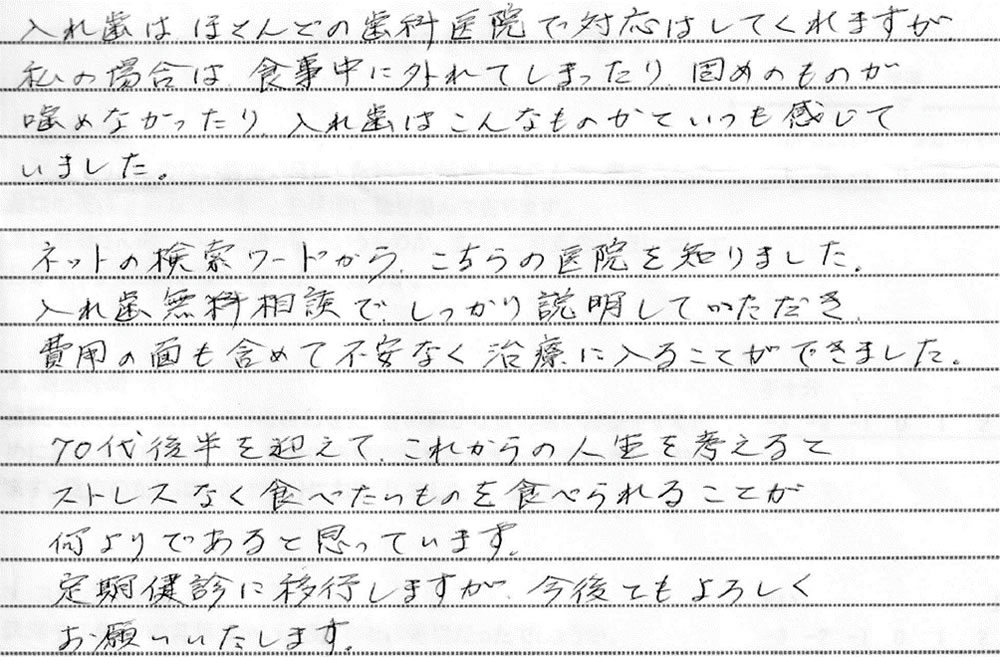 入れ歯はほとんどの歯科医院で対応はしてくれますが
私の場合は、食事中に外れてしまったり、固めのものが
噛めなかったり、入れ歯はこんなものかといつも感じて
いました。
ネットの検索ワードから、こちらの医院を知りました。
入れ歯無料相談で、しっかり説明していただき、
費用の面も含めて不安なく治療に入ることができました。
70代後半を迎えて、これからの人生を考えると
ストレスなく食べたいものを食べられることが
何よりであると思っています。
定期健診に移行しますが、今後ともよろしく
お願いいたします。